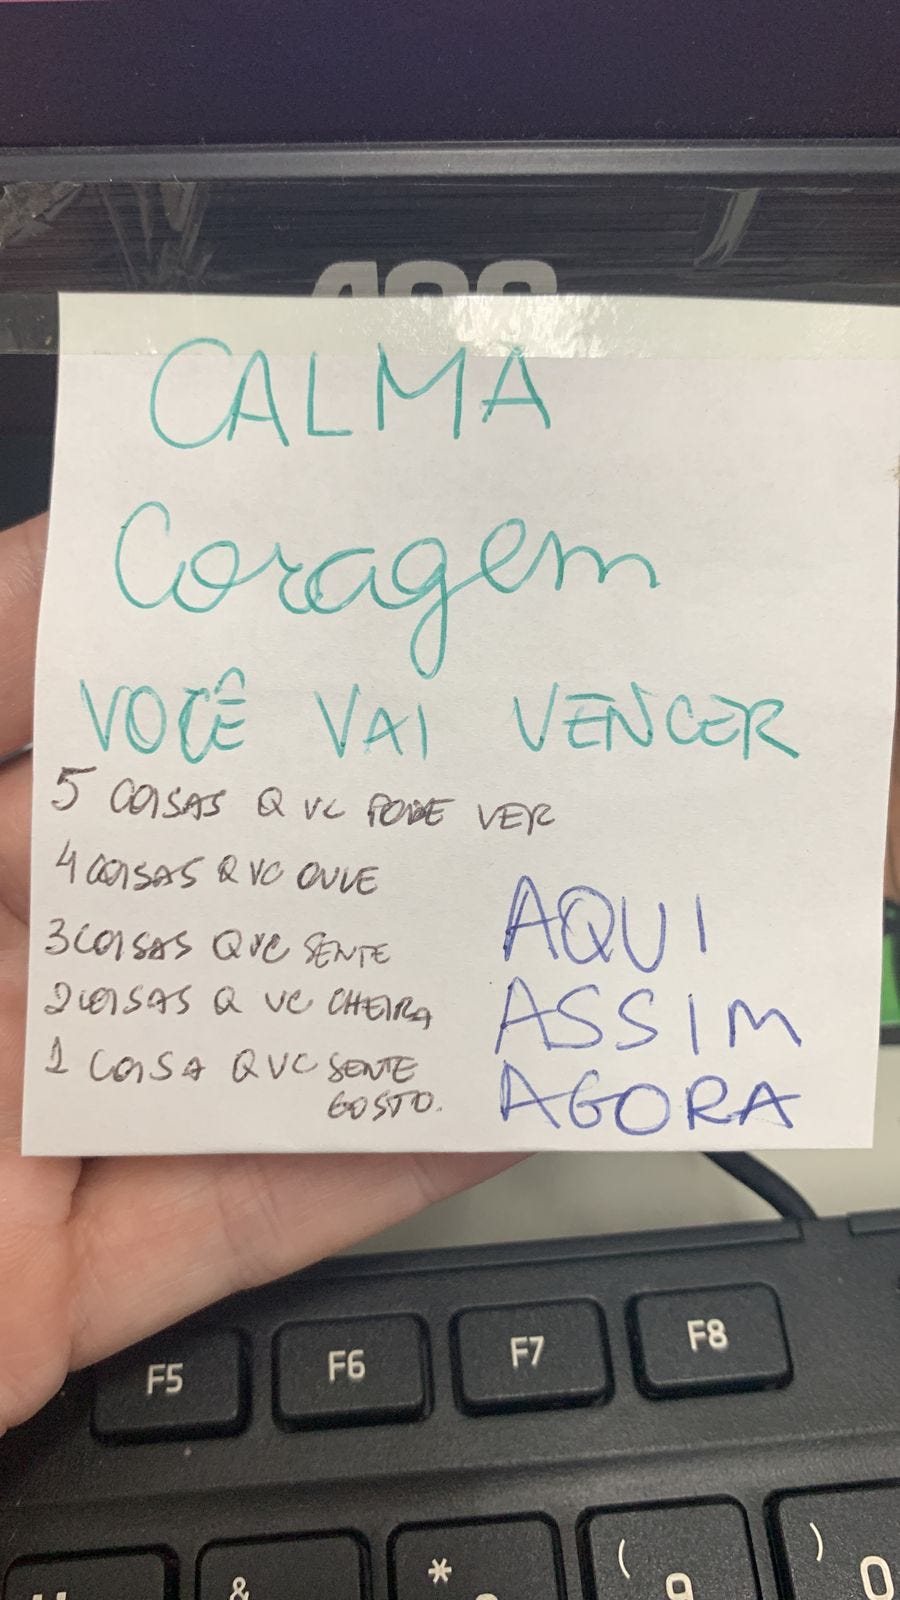 CALMA
Coragem
VOCÊ VAI VENCER
5 COISAS Q VC PODE VER
4 COISAS Q VC OUVE
3 COISAS Q VC SENTE
2 COISAS Q VC CHEIRA
1 COISA Q VC SENTE
GOSTO.
AQUI
ASSIM
AGORA
F5 F6 F7 F8
& * ( )
9 0